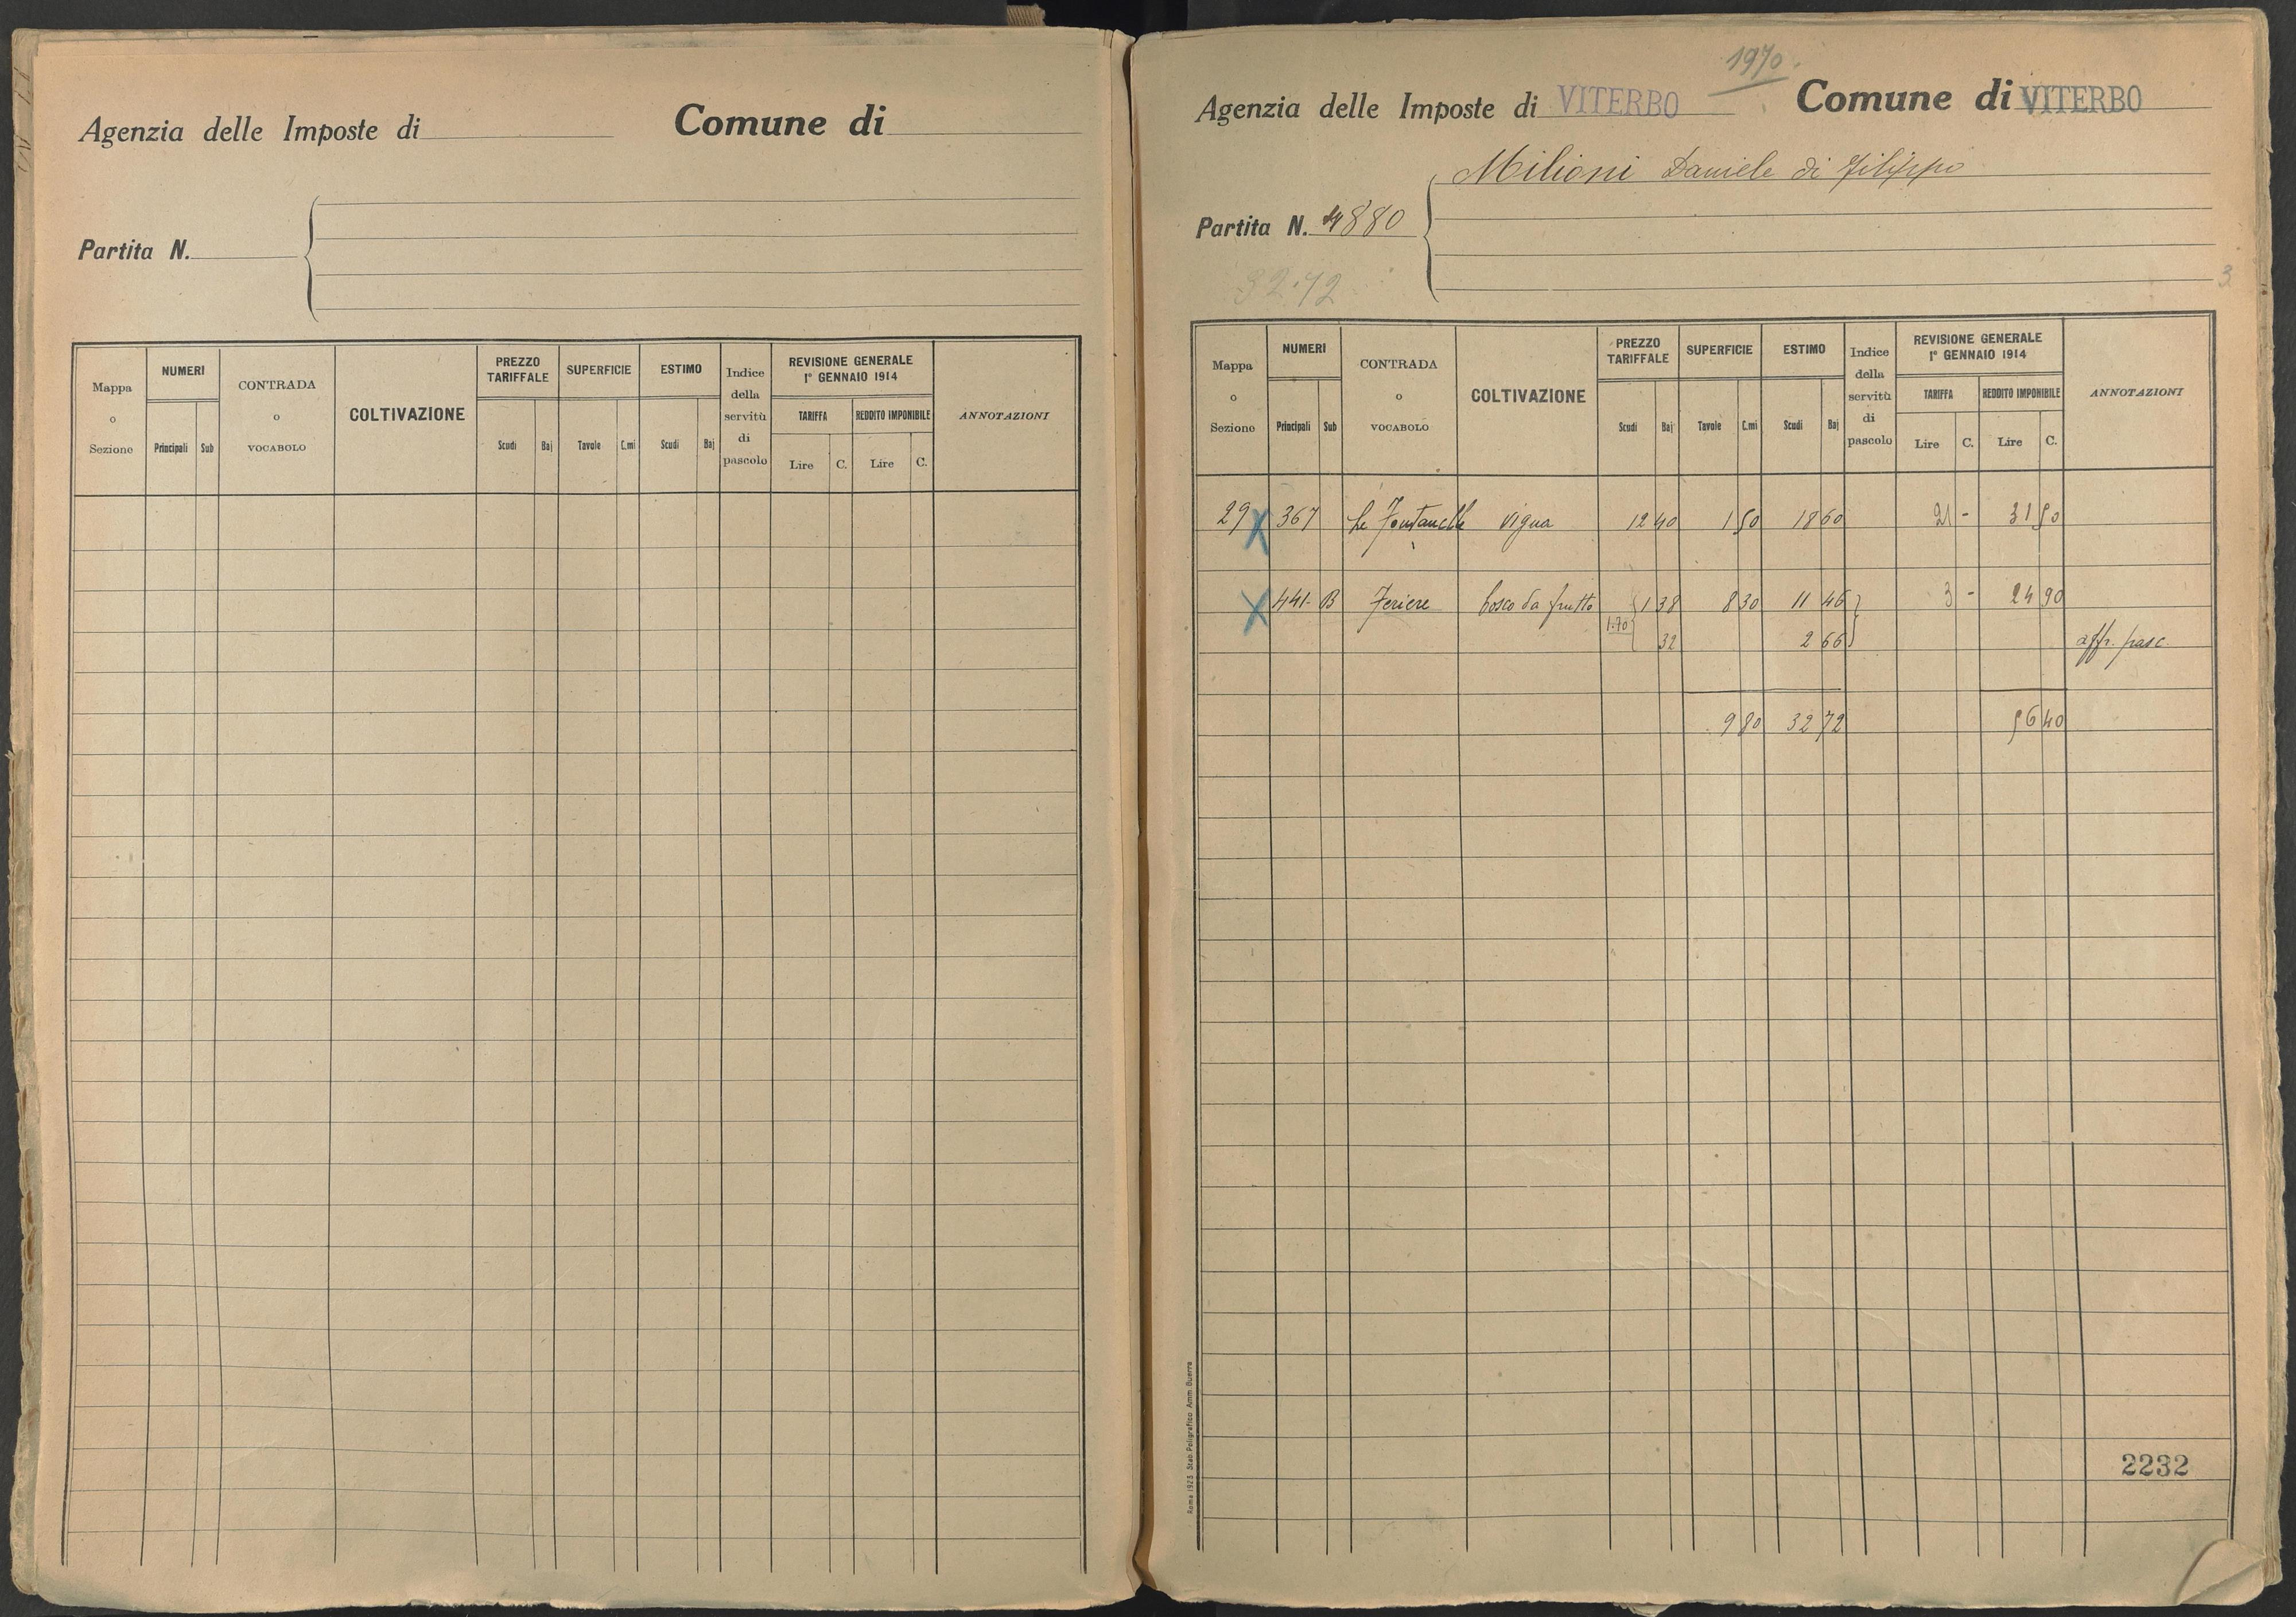 Agenzia delle Imposte di Comune di
Partita N.
Mappa o Sezione NUMERI Principali Sub CONTRADA o VOCABOLO COLTIVAZIONE PREZZO TARIFFALE Scudi Baj SUPERFICIE Tavole C.mi ESTIMO Scudi Baj Indice della servitù di pascolo REVISIONE GENERALE 1° GENNAIO 1914 TARIFFA Lire C. REDDITO IMPONIBILE Lire C. ANNOTAZIONI
1970.
Agenzia delle Imposte di VITERBO Comune di VITERBO
Milioni Daniele di Filippo
Partita N. 4880
32.72
3
Mappa o Sezione NUMERI Principali Sub CONTRADA o VOCABOLO COLTIVAZIONE PREZZO TARIFFALE Scudi Baj SUPERFICIE Tavole C.mi ESTIMO Scudi Baj Indice della servitù di pascolo REVISIONE GENERALE 1° GENNAIO 1914 TARIFFA Lire C. REDDITO IMPONIBILE Lire C. ANNOTAZIONI
29 X 367 Le Fontanelle vigna 12 40 1 50 18 60 21 - 31 50
X 441 B Feriere bosco da frutto 1 38 8 30 11 46 3 - 24 90
1.70 32 2 66 affr. pasc.
9 80 32 72 56 40
2232
Roma 1923 Stab. Poligrafico Amm. Guerra